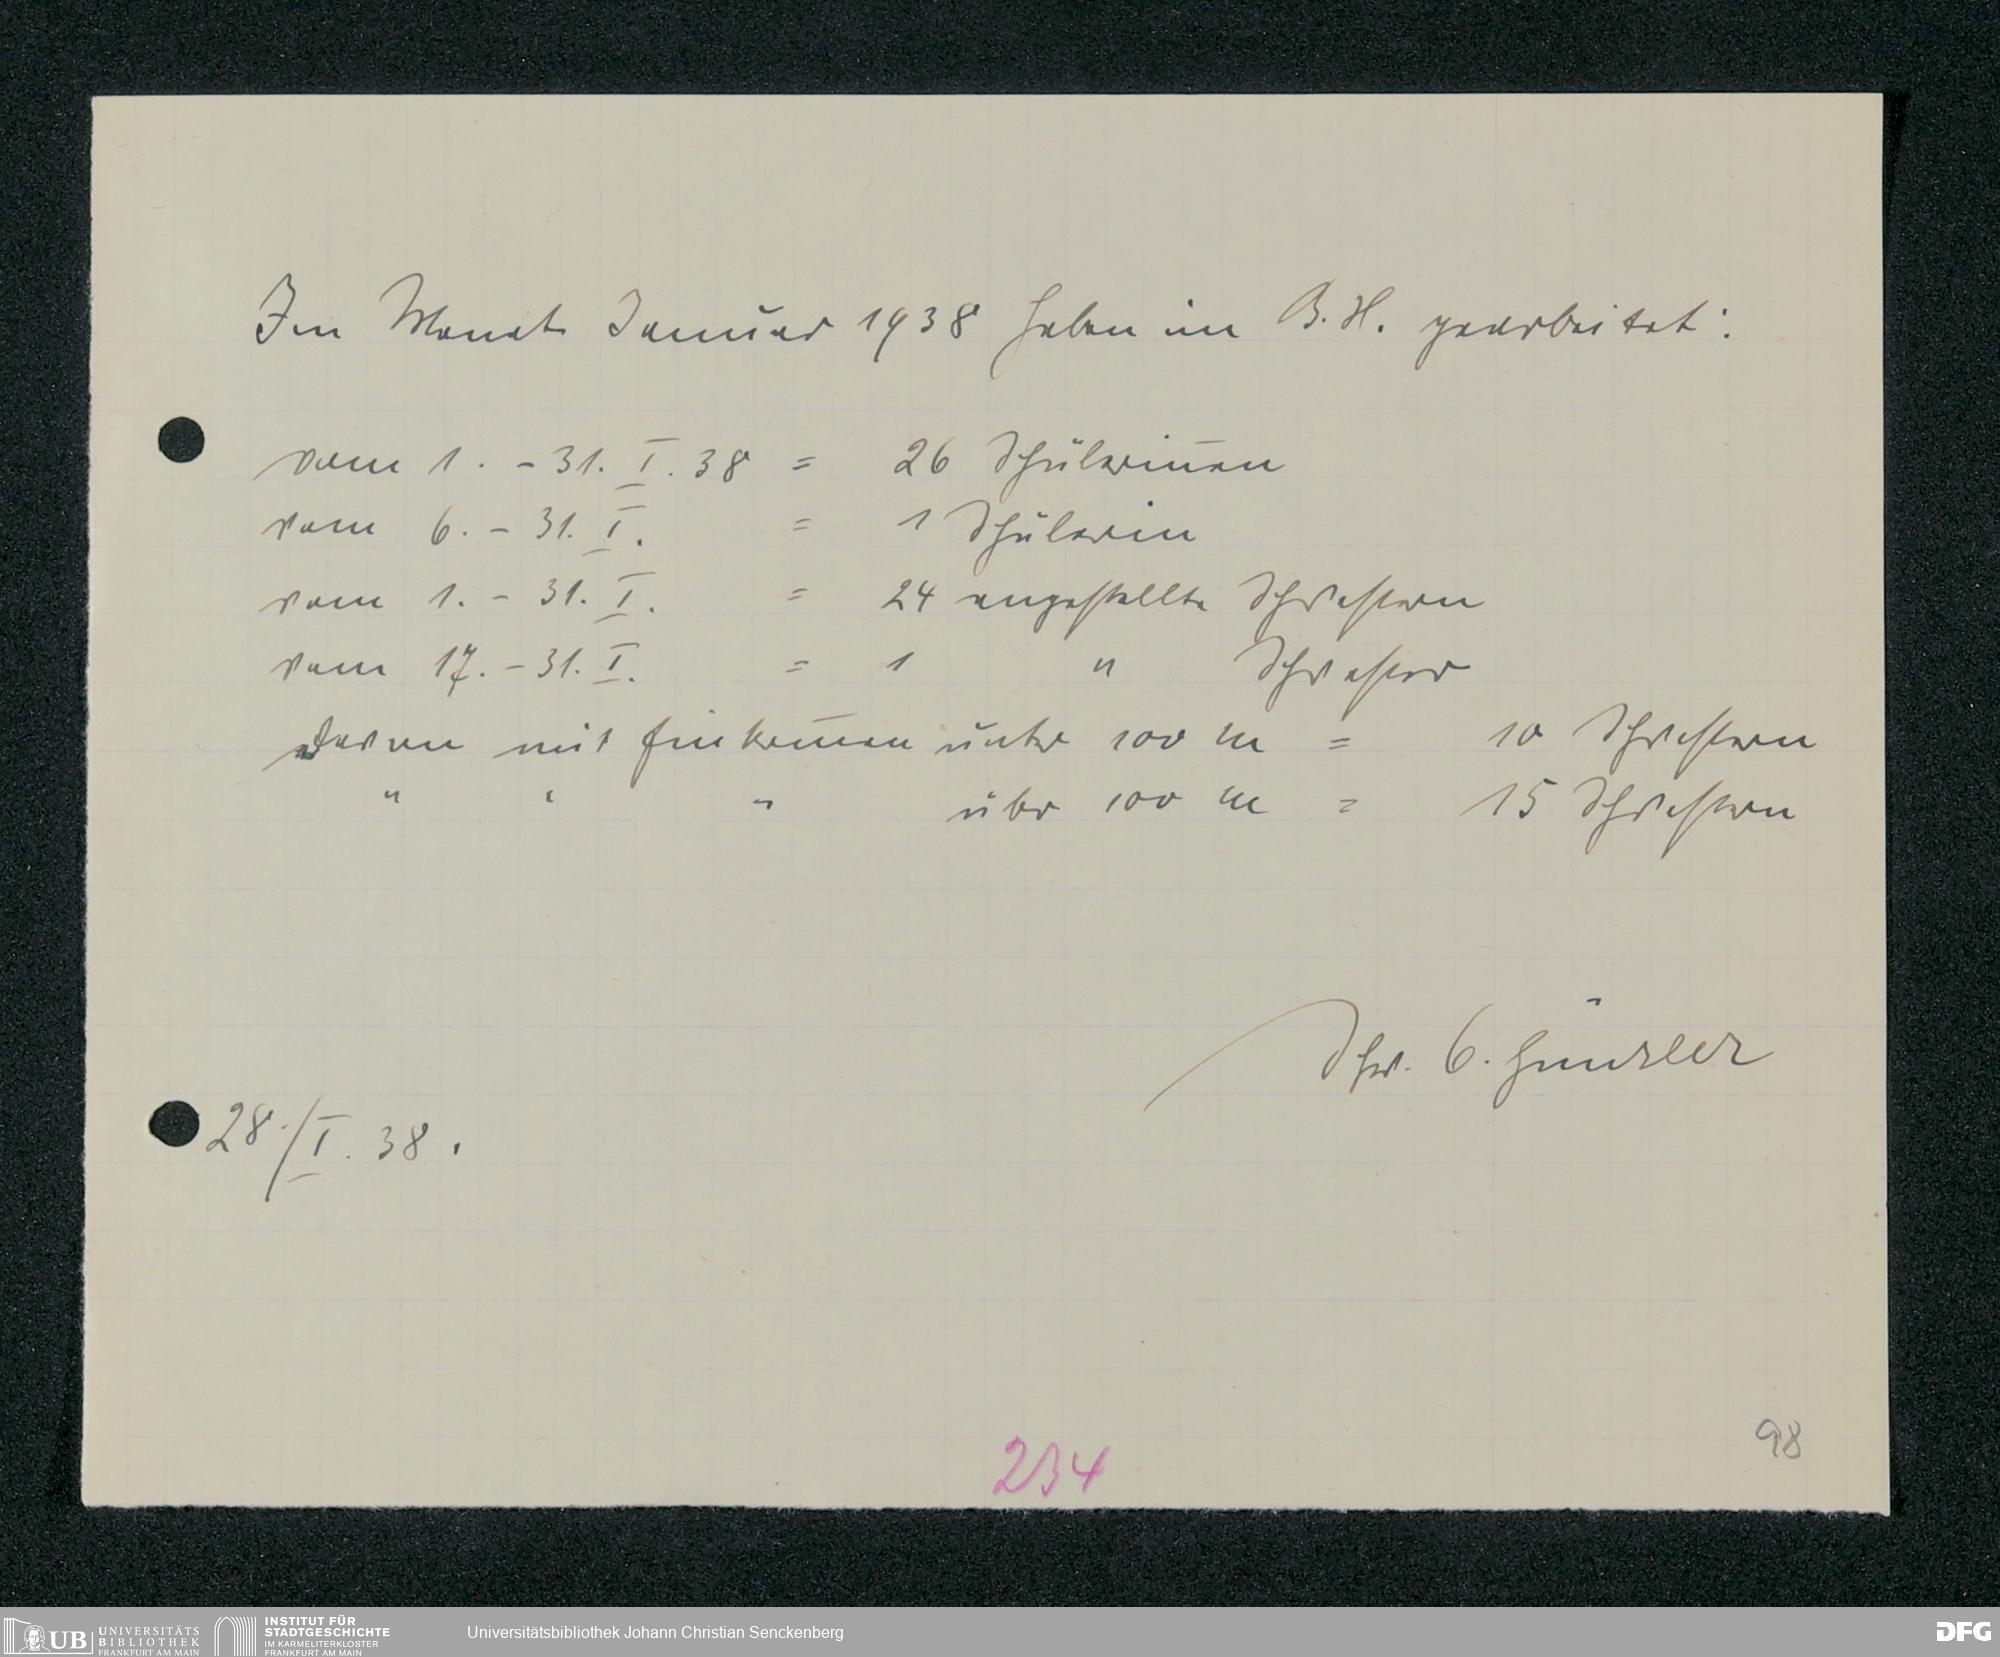 Im Monat Januar 1938 haben im B. H. gearbeitet:
vom 1. - 31. I. 38 = 26 Schülerinnen
vom 6. - 31. I. = 1 Schülerin
vom 1. - 31. I. = 24 angestellte Schwestern
vom 17. - 31. I. = 1 " Schwester
davon mit Einkommen unter 100 M = 10 Schwestern
" " " über 100 M = 15 Schwestern
Schw. G.
28./I. 38.
234
98
UB UNIVERSITÄTS
BIBLIOTHEK
FRANKFURT AM MAIN
INSTITUT FÜR
STADTGESCHICHTE
IM KARMELITERKLOSTER
FRANKFURT AM MAIN
Universitätsbibliothek Johann Christian Senckenberg
DFG